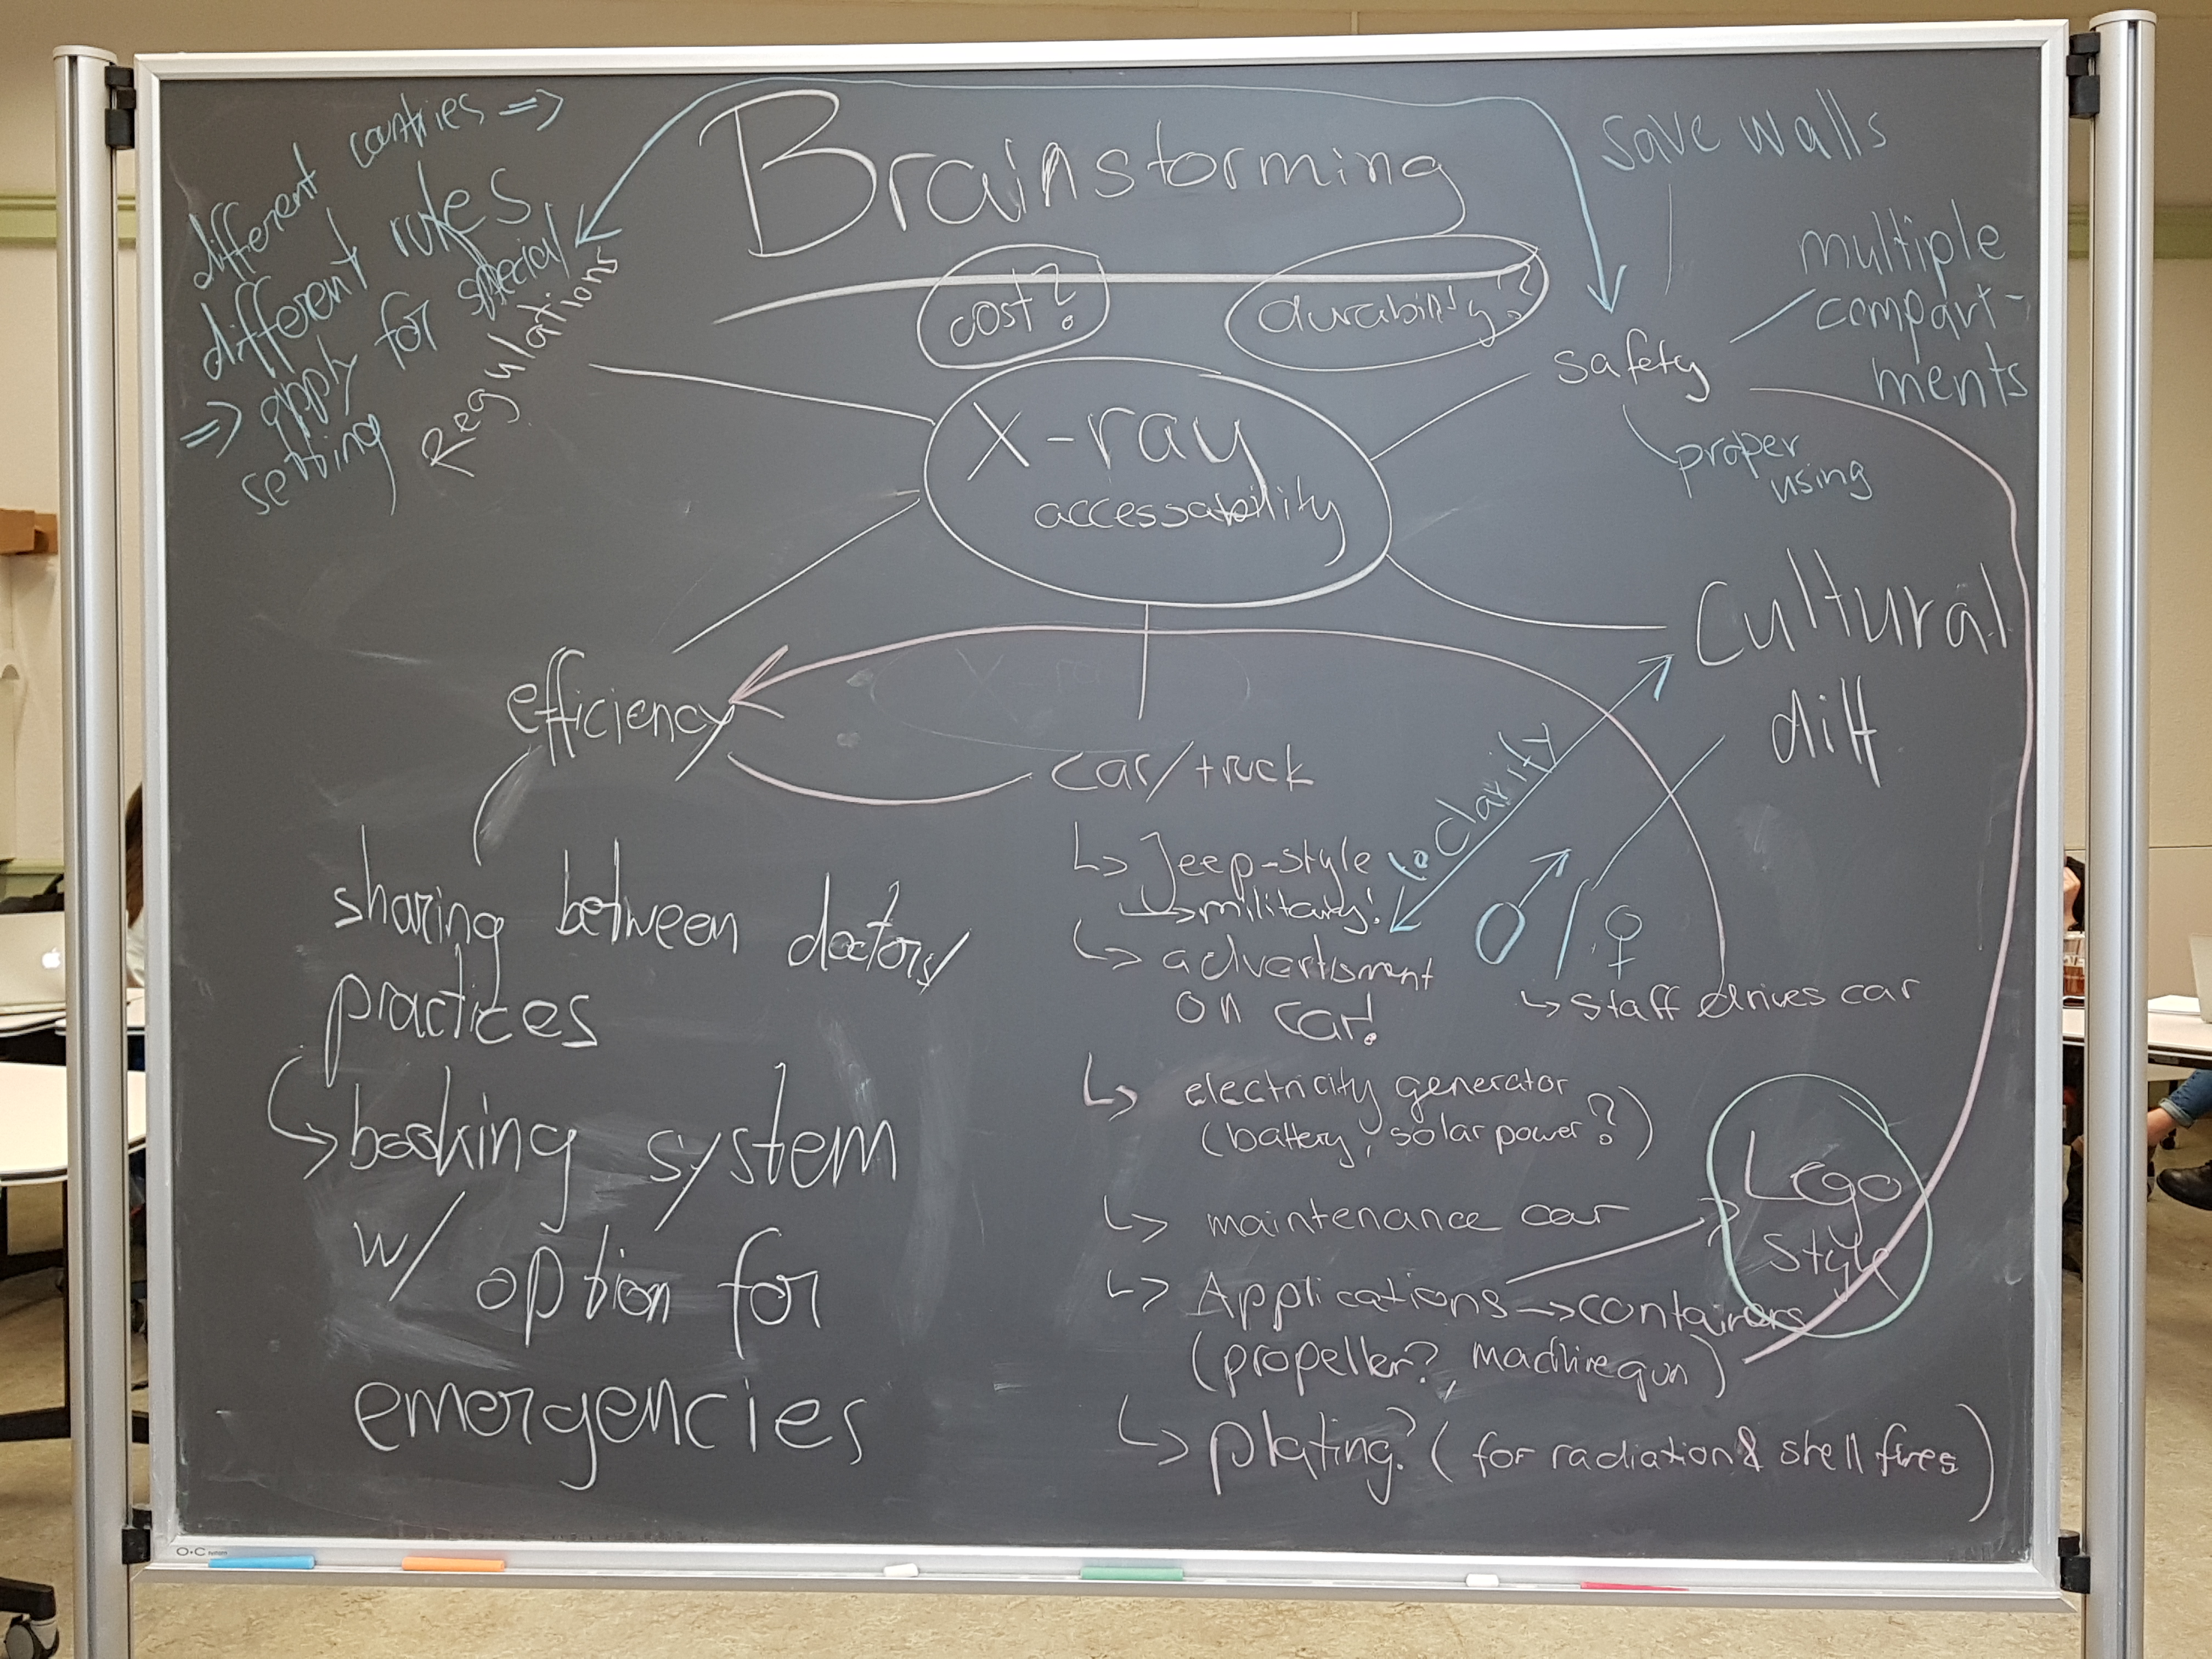 Brainstorming
different countries =>
different rules
=> apply for special
setting
Regulations
cost?
durability?
save walls
multiple
compart-
ments
safety
proper
using
X-ray
accessability
Cultural
diff
efficiency
X-ray
car/truck
clarity
↳ Jeep-style
↳ military!
↳ advertisment
on car!
♂ / ♀
↳ staff drives car
sharing between doctors/
practices
↳ booking system
w/ option for
emergencies
↳ electricity generator
(battery, solar power?)
↳ maintenance car
Lego
Style
↳ Applications → containers
(propeller?, machinegun)
↳ plating? (for radiation & shell fires)
O•C